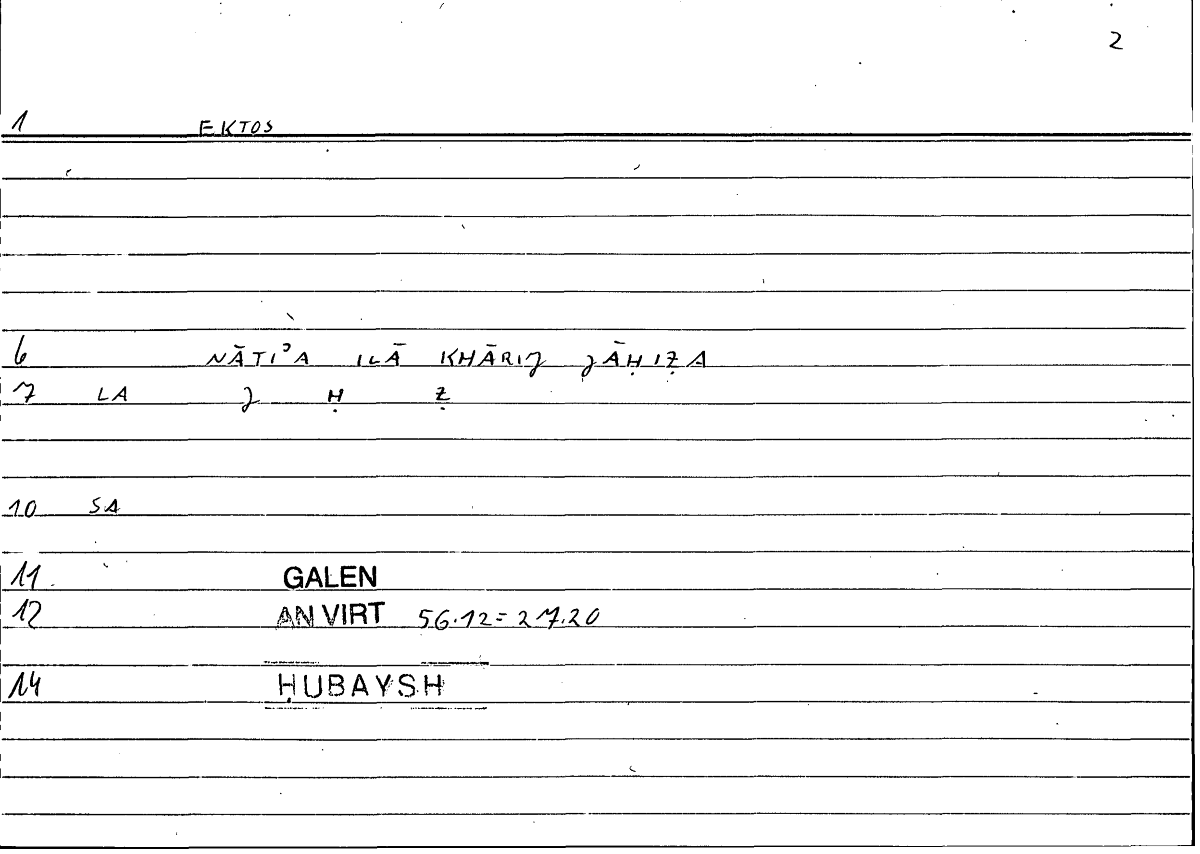 2
1 EKTOS
6 NĀTIʾA ILĀ KHĀRIJ JĀḤIẒA
7 LA J Ḥ Ẓ
10 SA
11 GALEN
12 AN VIRT 56.12=27.20
14 ḤUBAYSH